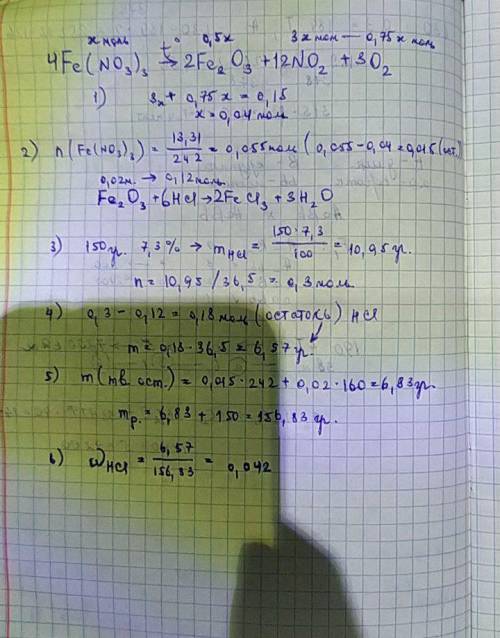 x моль 0,5x 3x мол — 0,75x мол
4Fe(NO₃)₃ →t° 2Fe₂O₃ + 12NO₂ + 3O₂
1) 3x + 0,75x = 0,15
x = 0,04 мол
2) n(Fe(NO₃)₃) = 13,31/242 = 0,055 мол (0,055 - 0,04 = 0,015 (ост.)
0,02м. → 0,12 мол.
Fe₂O₃ + 6HCl → 2FeCl₃ + 3H₂O
3) 150 гр. 7,3% → mHCl = 150·7,3/100 = 10,95 гр.
n = 10,95 / 36,5 = 0,3 мол.
4) 0,3 - 0,12 = 0,18 мол (остатокь) HCl
m = 0,18·36,5 = 6,57 гр.
5) m(тв. ост.) = 0,015·242 + 0,02·160 = 6,83 гр.
mр. = 6,83 + 150 = 156,83 гр.
6) ωHCl = 6,57/156,83 = 0,042